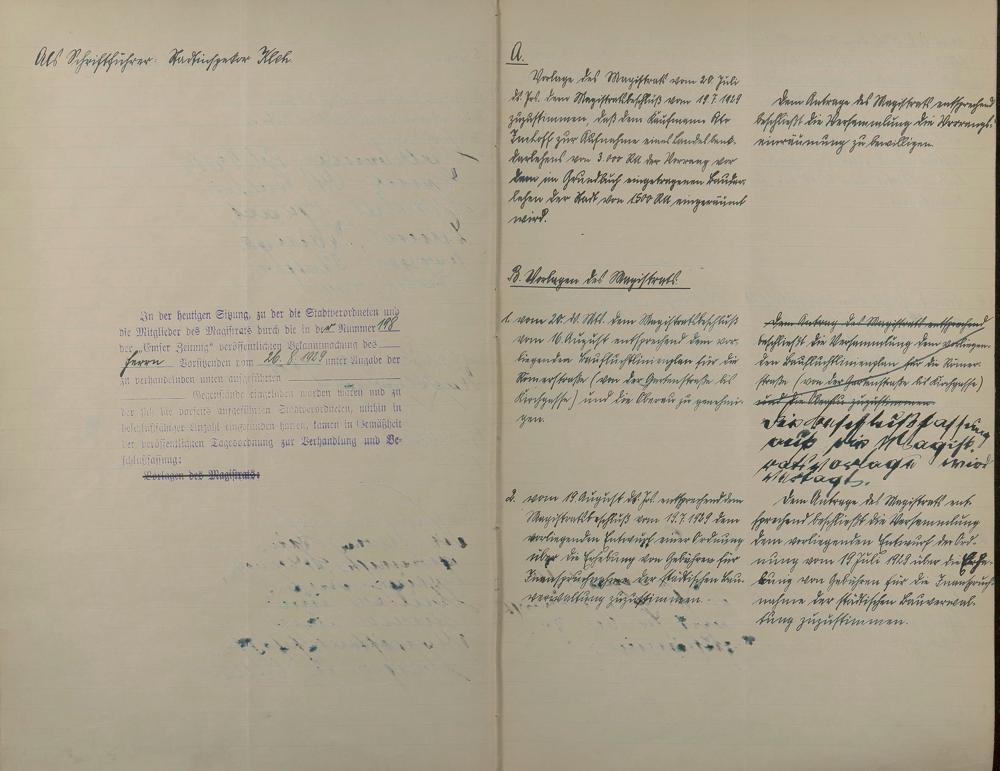 Als Schriftführer: Stadtinspektor
In der heutigen Sitzung, zu der die Stadtverordneten und
die Mitglieder des Magistrats durch die in der Nummer 198
der „Emser Zeitung“ veröffentlichten Bekanntmachung des
Herrn Vorsitzenden vom 26. 8. 1929 unter Angabe der
zu verhandelnden unten aufgeführten
Gegenstände eingeladen worden waren und zu
der sich die vorseits aufgeführten Stadtverordneten, mithin in
beschlußfähiger Anzahl eingefunden hatten, kamen in Gemäßheit
der veröffentlichten Tagesordnung zur Verhandlung und Be-
schlußfassung:
Vorlagen des Magistrats:
A.
Vorlage des Magistrats vom 20. Juli
ds. Js. dem Magistratsbeschluß vom 19.7.1929
zuzustimmen, daß dem Kaufmann Otto
zur Aufnahme eines Landesbank-
darlehens von 3.000 RM der Vorrang vor
dem im Grundbuch eingetragenen Baudar-
lehen der Stadt von 1500 RM eingeräumt
wird.
Dem Antrage des Magistrats entsprechend
beschließt die Versammlung die Vorrangs-
einräumung zu bewilligen.
B. Vorlagen des Magistrats.
1. vom 20. ds. Mts. dem Magistratsbeschluß
vom 16. August entsprechend dem vor-
liegenden Baufluchtlinienplan für die
Römerstraße (von der Gartenstraße bis
Kirchgasse) und die Oberau zu genehmi-
gen.
Dem Antrag des Magistrats entsprechend
beschließt die Versammlung dem vorliegen-
den Baufluchtlinienplan für die Römer-
straße (von der Gartenstraße bis Kirchgasse)
und die Oberau zuzustimmen
Die Beschlußfassung
auf die Magist-
ratsvorlage wird
vertagt.
2. vom 19. August ds. Js. entsprechend dem
Magistratsbeschluß vom 19.7.1929 dem
vorliegenden Entwurf einer Ordnung
über die Erhebung von Gebühren für
Inanspruchnahme der städtischen Bau-
verwaltung zuzustimmen.
Dem Antrage des Magistrats ent-
sprechend beschließt die Versammlung
dem vorliegenden Entwurf der Ord-
nung vom 19 Juli 1929 über die Erhe-
bung von Gebühren für die Inanspruch-
nahme der städtischen Bauverwal-
tung zuzustimmen.